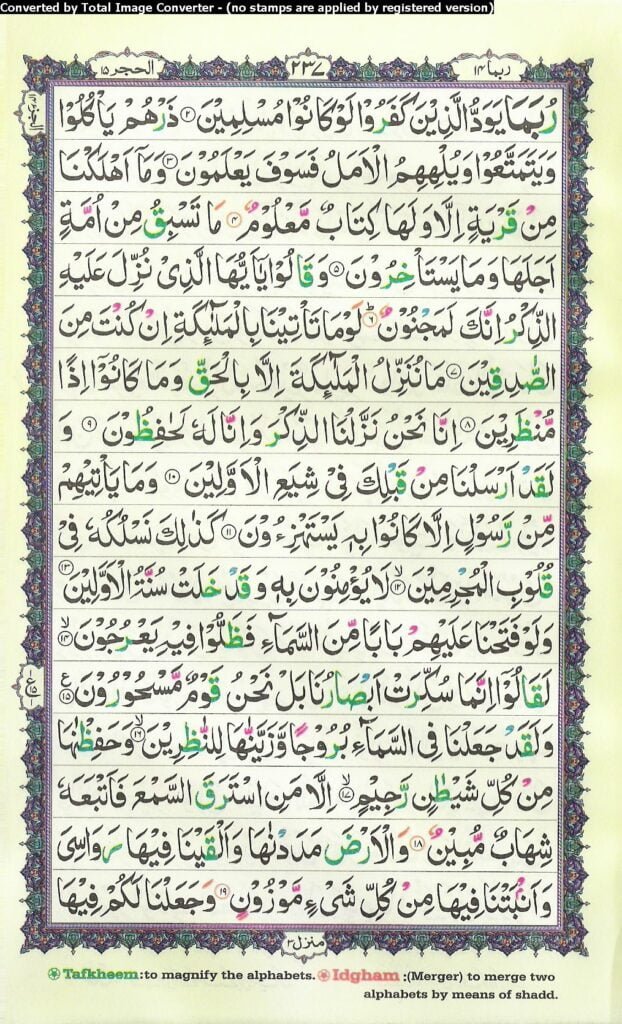 Converted by Total Image Converter - (no stamps are applied by registered version)
ربما ١٤
٢٣٧
الحجر ١٥
رُبَمَا يَوَدُّ الَّذِيْنَ كَفَرُوْا لَوْ كَانُوْا مُسْلِمِيْنَ ۲ ذَرْهُمْ يَاْكُلُوْا
وَيَتَمَتَّعُوْا وَيُلْهِهِمُ الْاَمَلُ فَسَوْفَ يَعْلَمُوْنَ ۳ وَمَاۤ اَهْلَكْنَا
مِنْ قَرْيَةٍ اِلَّا وَلَهَا كِتَابٌ مَّعْلُوْمٌ ۴ مَا تَسْبِقُ مِنْ اُمَّةٍ
اَجَلَهَا وَمَا يَسْتَاْخِرُوْنَ ۵ وَقَالُوْا يٰۤاَيُّهَا الَّذِيْ نُزِّلَ عَلَيْهِ
الذِّكْرُ اِنَّكَ لَمَجْنُوْنٌ ؕ ۶ لَوْمَا تَاْتِيْنَا بِالْمَلٰٓئِكَةِ اِنْ كُنْتَ مِنَ
الصّٰدِقِيْنَ ۷ مَا نُنَزِّلُ الْمَلٰٓئِكَةَ اِلَّا بِالْحَقِّ وَمَا كَانُوْۤا اِذًا
مُّنْظَرِيْنَ ۸ اِنَّا نَحْنُ نَزَّلْنَا الذِّكْرَ وَاِنَّا لَهٗ لَحٰفِظُوْنَ ۹ وَ
لَقَدْ اَرْسَلْنَا مِنْ قَبْلِكَ فِيْ شِيَعِ الْاَوَّلِيْنَ ۱۰ وَمَا يَاْتِيْهِمْ
مِّنْ رَّسُوْلٍ اِلَّا كَانُوْا بِهٖ يَسْتَهْزِءُوْنَ ۱۱ كَذٰلِكَ نَسْلُكُهٗ فِيْ
قُلُوْبِ الْمُجْرِمِيْنَ ۙ ۱۲ لَا يُؤْمِنُوْنَ بِهٖ وَقَدْ خَلَتْ سُنَّةُ الْاَوَّلِيْنَ ۱۳
وَلَوْ فَتَحْنَا عَلَيْهِمْ بَابًا مِّنَ السَّمَآءِ فَظَلُّوْا فِيْهِ يَعْرُجُوْنَ ۙ ۱۴
لَقَالُوْۤا اِنَّمَا سُكِّرَتْ اَبْصَارُنَا بَلْ نَحْنُ قَوْمٌ مَّسْحُوْرُوْنَ ۱۵ ع
وَلَقَدْ جَعَلْنَا فِي السَّمَآءِ بُرُوْجًا وَّزَيَّنّٰهَا لِلنّٰظِرِيْنَ ۙ ۱۶ وَحَفِظْنٰهَا
مِنْ كُلِّ شَيْطٰنٍ رَّجِيْمٍ ۙ ۱۷ اِلَّا مَنِ اسْتَرَقَ السَّمْعَ فَاَتْبَعَهٗ
شِهَابٌ مُّبِيْنٌ ۱۸ وَالْاَرْضَ مَدَدْنٰهَا وَاَلْقَيْنَا فِيْهَا رَوَاسِيَ
وَاَنْۢبَتْنَا فِيْهَا مِنْ كُلِّ شَيْءٍ مَّوْزُوْنٍ ۱۹ وَجَعَلْنَا لَكُمْ فِيْهَا
منزل ۳
Tafkheem :to magnify the alphabets. Idgham :(Merger) to merge two
alphabets by means of shadd.